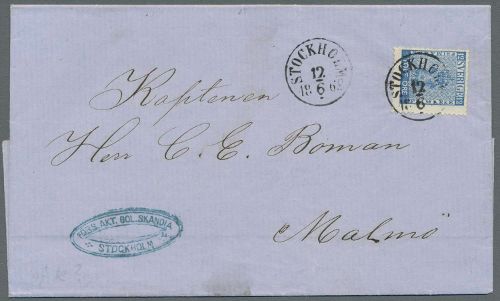 STOCKHOLM
12
6
STOCKHO
12
6
SVERIGE
Kaptenen
Herr C. E. Boman
Malmö
AKT. BOL. SKANDIA
STOCKHOLM